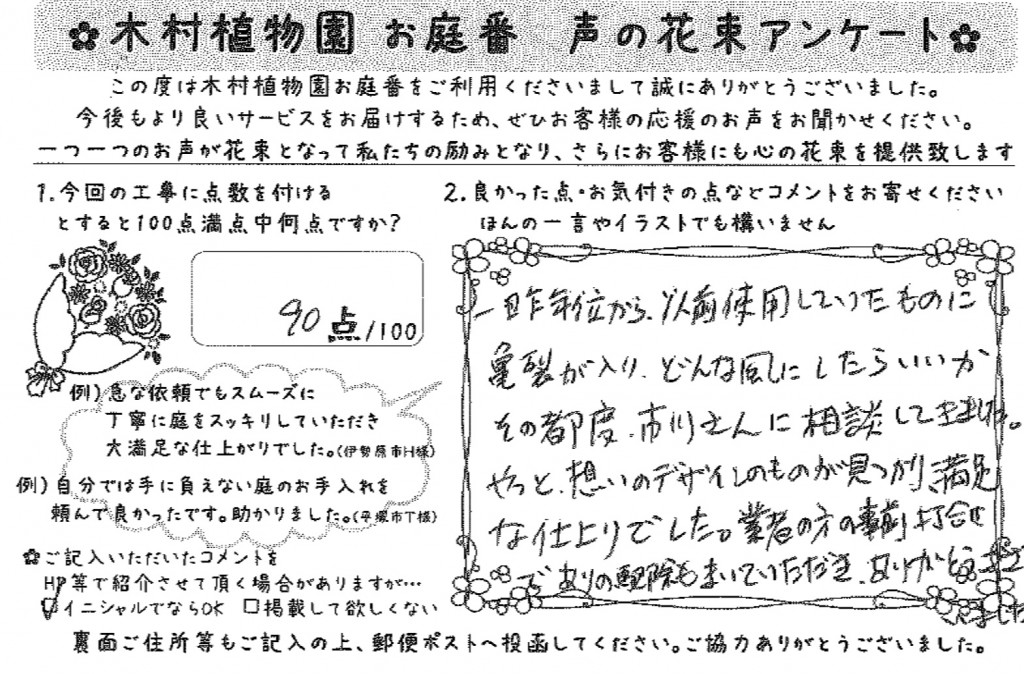 ✿木村植物園 お庭番 声の花束アンケート✿
この度は木村植物園お庭番をご利用くださいまして誠にありがとうございました。
今後もより良いサービスをお届けするため、ぜひお客様の応援のお声をお聞かせください。
一つ一つのお声が花束となって私たちの励みとなり、さらにお客様にも心の花束を提供致します
1.今回の工事に点数を付ける
とすると100点満点中何点ですか？
90点/100
例）急な依頼でもスムーズに
丁寧に庭をスッキリしていただき
大満足な仕上がりでした。(伊勢原市H様)
例）自分では手に負えない庭のお手入れを
頼んで良かったです。助かりました。(平塚市T様)
✿ご記入いただいたコメントを
HP等で紹介させて頂く場合がありますが…
☑イニシャルでならOK □掲載して欲しくない
2.良かった点・お気付きの点などコメントをお寄せください
ほんの一言やイラストでも構いません
一昨年位から、以前使用していたものに
亀裂が入り、どんな風にしたらいいか
その都度、市川さんに相談して
やっと、想いのデザインのものが見つかり、満足
な仕上りでした。業者の方の事前打合せ
でありの駆除もまいていただき、ありがとうござ
いました
裏面ご住所等もご記入の上、郵便ポストへ投函してください。ご協力ありがとうございました。